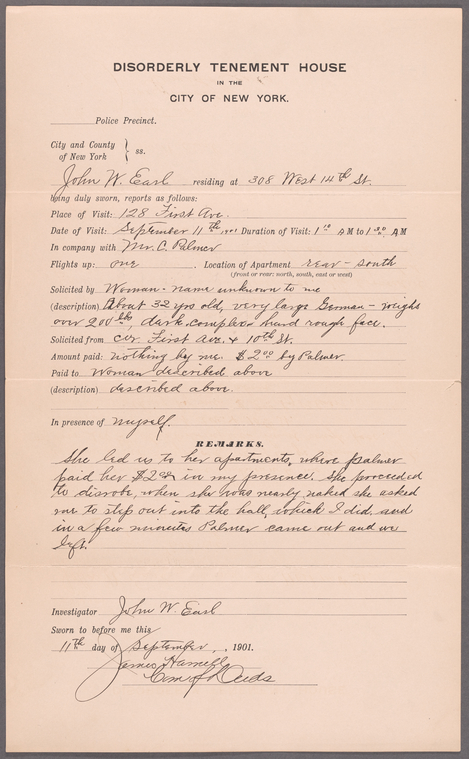 DISORDERLY TENEMENT HOUSE
IN THE
CITY OF NEW YORK.
Police Precinct.
City and County
of New York } ss.
John W. Earl residing at 308 West 14th St.
being duly sworn, reports as follows:
Place of Visit: 128 First Ave.
Date of Visit: September 11th 1901 Duration of Visit: 1 10 AM to 1 30 AM
In company with Mr. C. Palmer
Flights up: one Location of Apartment rear - south
(front or rear: north, south, east or west)
Solicited by Woman - name unknown to me
(description) About 32 yrs old, very large German - weighs
over 200 lbs, dark complex hard rough face.
Solicited from cor. First Ave. & 10th St.
Amount paid: nothing by me. $2.00 by Palmer
Paid to Woman described above
(description) described above.
In presence of myself.
REMARKS.
She led us to her apartments, where Palmer
paid her $2.00 in my presence. She proceeded
to disrobe, when she was nearly naked she asked
me to step out into the hall, which I did, and
in a few minutes Palmer came out and we
left.
Investigator John W. Earl
Sworn to before me this
11th day of September, 1901.
James Hamell
Com of Deeds